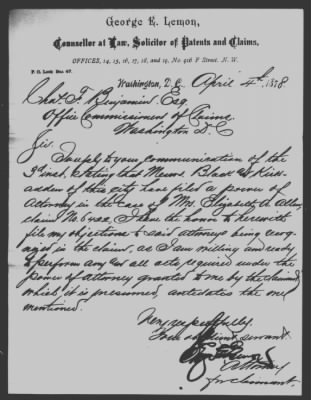 George E. Lemon,
Counsellor at Law, Solicitor of Patents and Claims,
OFFICES, 14, 15, 16, 17, 18, and 19, No. 916 F Street. N. W.
P. O. Lock Box 47.
Washington, D. C. April 4th, 1878
Chas. F. Benjamin Esq.
Office Commissioner of Claims
Washington D.C
Sir.
In reply to your communication of the
3d inst. stating that Messrs Black & Kirk-
adden of this city have filed a power of
Attorney in the case of Mrs. Elizabeth A. Allen,
claim No 6422, I have the honor to herewith
file my objections to said attorneys being recog-
nized in the claim, as I am willing and ready
to perform any & all acts required under the
power of attorney granted to me by the claimant
which, it is presumed, antedates the one
mentioned.
Very respectfully.
Your obedient servant
Geo E Lemon
Attorney
for claimant.